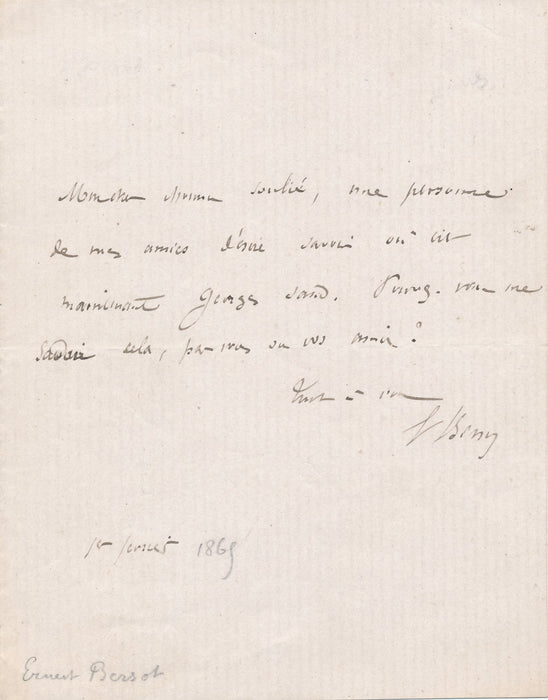 Mon cher Soulié, une personne
de mes amies désire savoir où est
maintenant Georges Sand. Pouvez-vous me
savoir cela, par vous ou vos amis ?
Tout à vous
Bersot
1er février 1865
Ernest Bersot